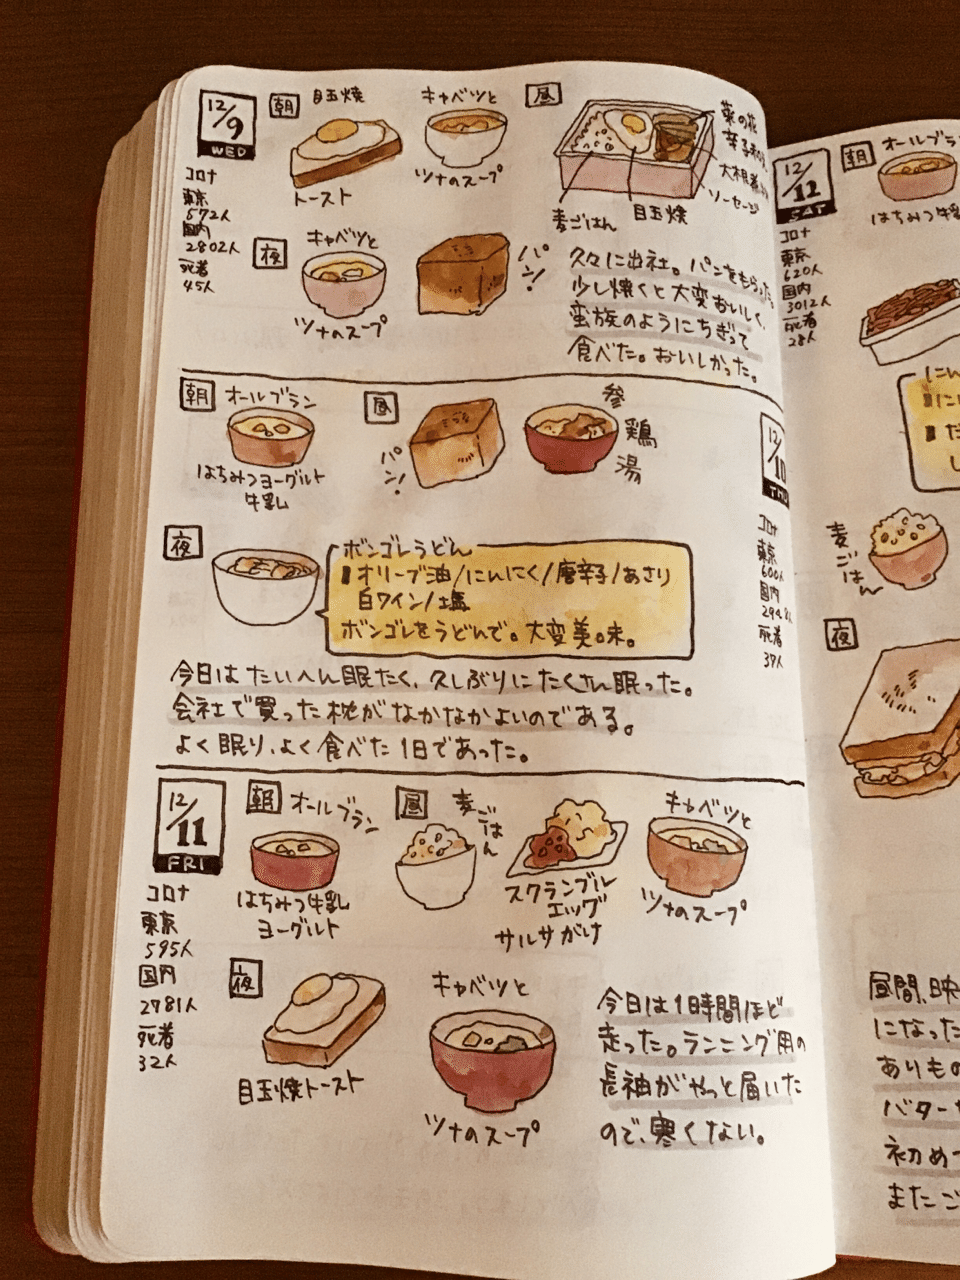 12/9
WED
コロナ
東京
572人
国内
2802人
死者
45人
朝
目玉焼
トースト
キャベツと
ツナのスープ
昼
菜の花
大根
ソーセージ
目玉焼
麦ごはん
夜
キャベツと
ツナのスープ
パン!
久々に出社。パンをもらった。
少し焼くと大変おいしく、
蛮族のようにちぎって
食べた。おいしかった。
12/10
コロナ
東京
600人
国内
人
死者
37人
朝
オールブラン
はちみつヨーグルト
牛乳
昼
パン!
参
鶏
湯
夜
ボンゴレうどん
オリーブ油/にんにく/唐辛子/あさり
白ワイン/塩
ボンゴレをうどんで。大変美味。
今日はたいへん眠たく、久しぶりにたくさん眠った。
会社で買った枕がなかなかよいのである。
よく眠り、よく食べた1日であった。
12/11
FRI
コロナ
東京
595人
国内
2781人
死者
32人
朝
オールブラン
はちみつ牛乳
ヨーグルト
昼
麦ごはん
スクランブル
エッグ
サルサがけ
キャベツと
ツナのスープ
夜
目玉焼トースト
キャベツと
ツナのスープ
今日は1時間ほど
走った。ランニング用の
長袖がやっと届いた
ので、寒くない。
12/12
SAT
コロナ
東京
620人
国内
3012人
死者
28人
朝
オールブラン
はちみつ牛乳
にん
麦ごはん
夜
昼間、映
になった
ありもの
バター
初めて
またご